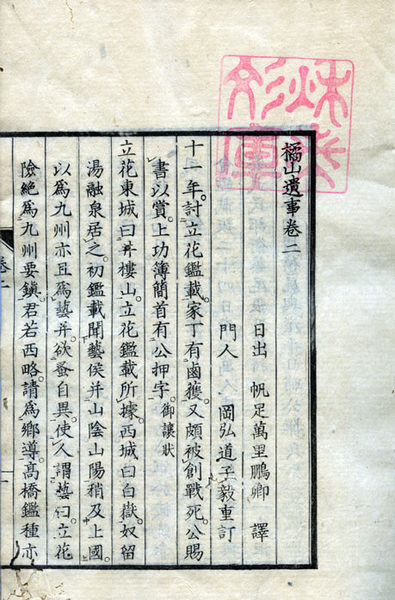 檑山遺事卷二
日出 帆足萬里鵬卿 譯
門人 岡弘道子毅重訂
十一年。討立花鑑載。家丁有鹵獲。又頗被創戰死。公賜
書以賞。上功簿簡首有公押字。御讓狀
立花東城曰井樓山。立花鑑載所據。西城曰白嶽。奴留
湯融泉居之。初鑑載聞藝侯并山陰山陽稍及上國。
以爲九州亦且爲藝并。欲蚤自異。使人謂藝曰。立花
險絶爲九州要鎭。君若西略。請爲鄉導。高橋鑑種亦